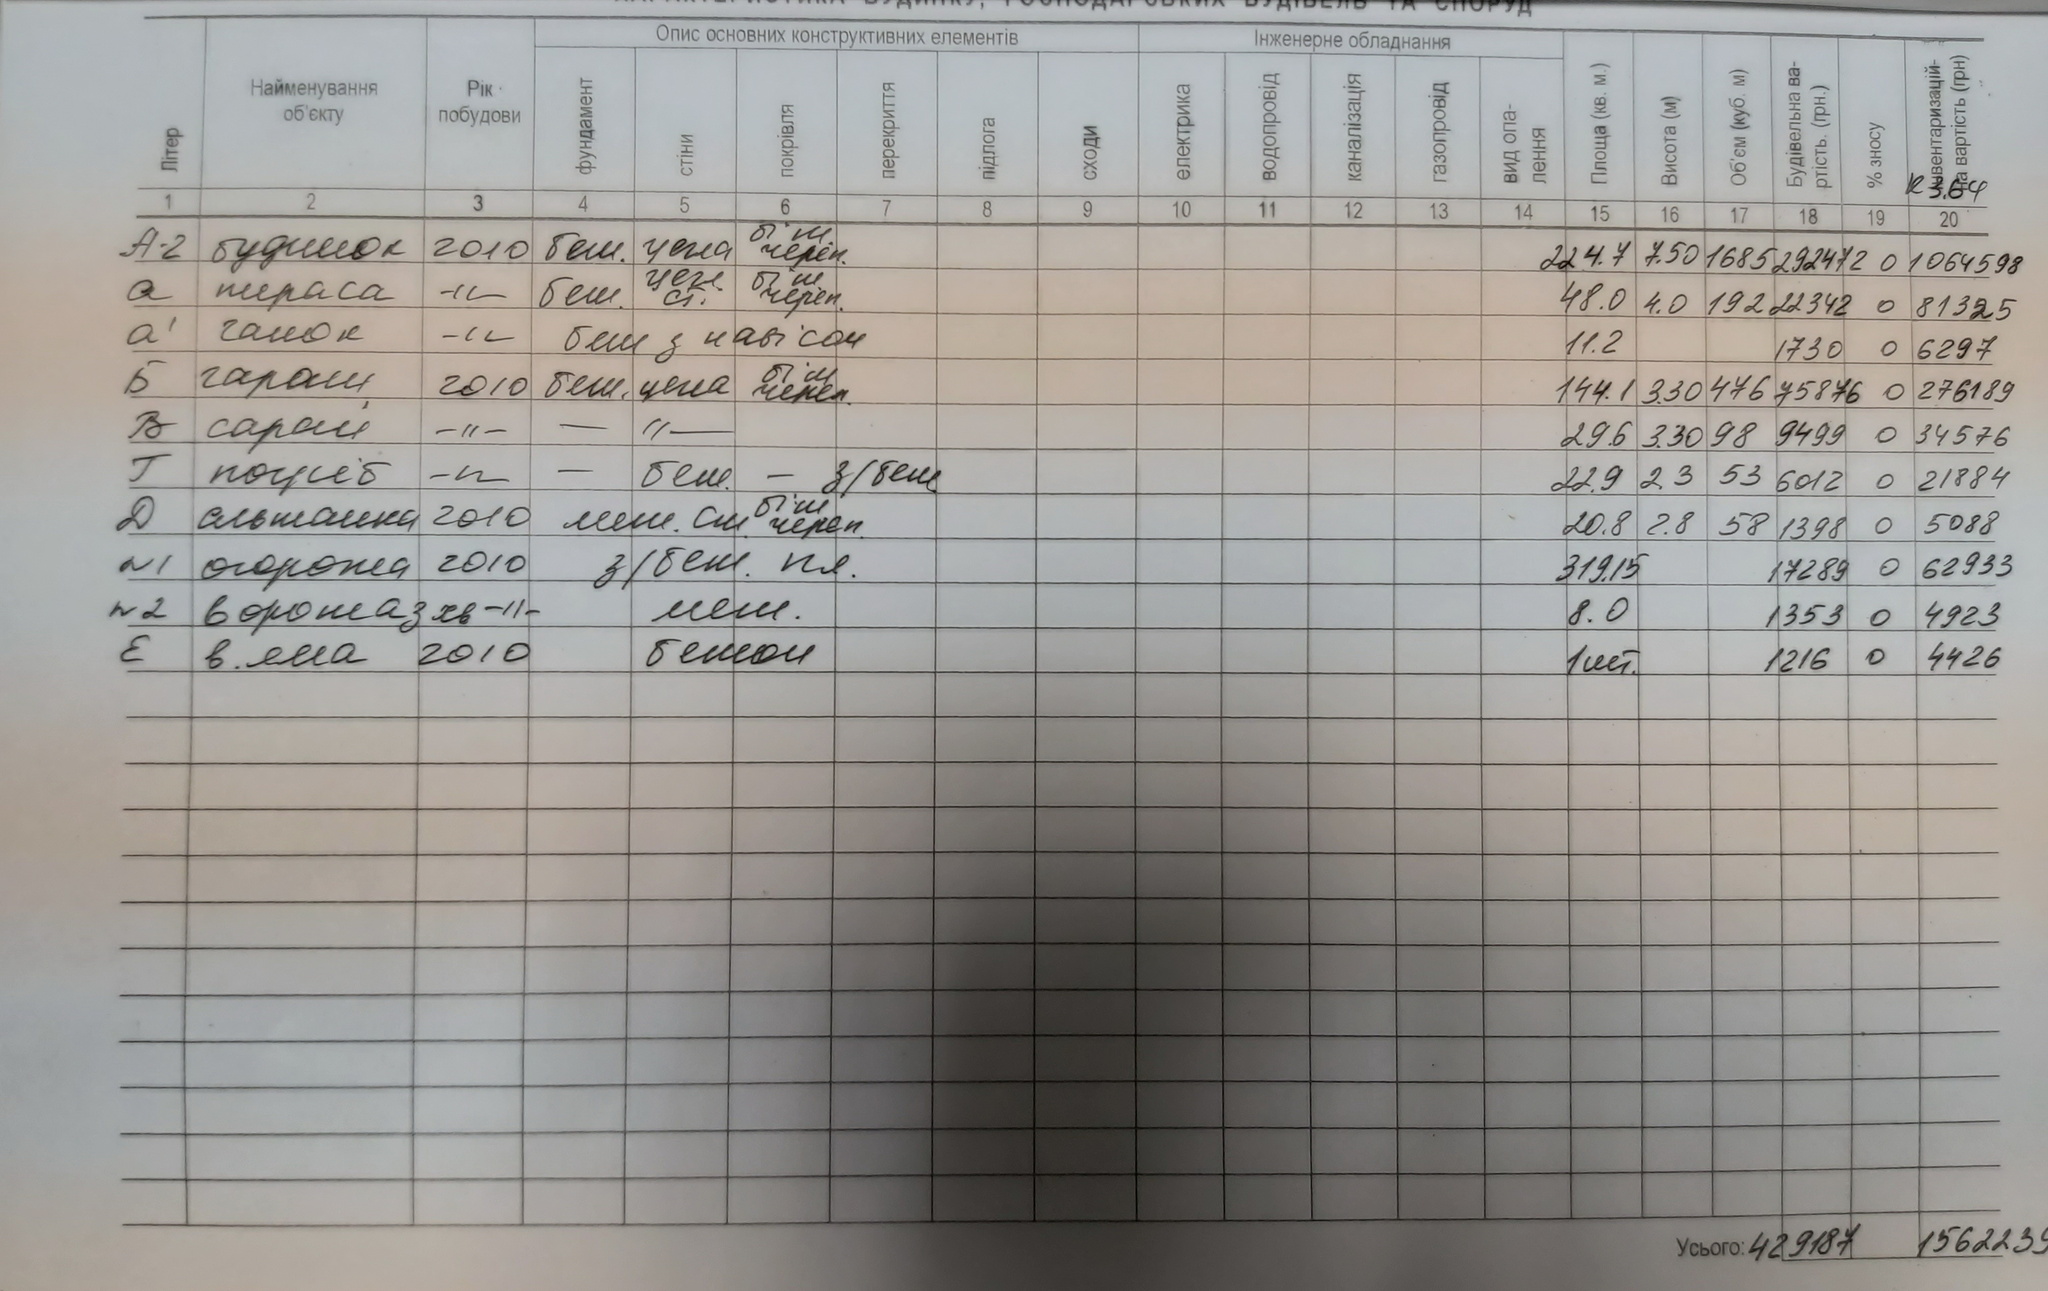 ХАРАКТЕРИСТИКА БУДИНКУ, ГОСПОДАРСЬКИХ БУДІВЕЛЬ ТА СПОРУД
Літер Найменування об'єкту Рік побудови Опис основних конструктивних елементів Інженерне обладнання Площа (кв. м.) Висота (м) Об'єм (куб. м) Будівельна ва-ртість. (грн.) % зносу Інвентаризацій-на вартість (грн)
фундамент стіни покрівля перекриття підлога сходи електрика водопровід каналізація газопровід вид опа-лення
к 3.64
1 2 3 4 5 6 7 8 9 10 11 12 13 14 15 16 17 18 19 20
А-2 будинок 2010 бет. цегла біт. череп. 224.7 7.50 1685 292472 0 1064598
а тераса -"- бет. цегл. ст. біт. череп. 48.0 4.0 192 22342 0 81325
а' ганок -"- бет з навісом 11.2 1730 0 6297
Б гараж 2010 бет. цегла біт. череп. 144.1 3.30 476 75876 0 276189
В сарай -"- — "— 29.6 3.30 98 9499 0 34576
Г погріб -"- — бет. — з/бет 22.9 2.3 53 6012 0 21884
Д альтанка 2010 мет. ст. біт. череп. 20.8 2.8 58 1398 0 5088
№1 огорожа 2010 з/бет. пл. 319.15 17289 0 62933
№2 ворота з хв -"- мет. 8.0 1353 0 4923
Е в.яма 2010 бетон 1шт. 1216 0 4426
Усього: 429187 1562239